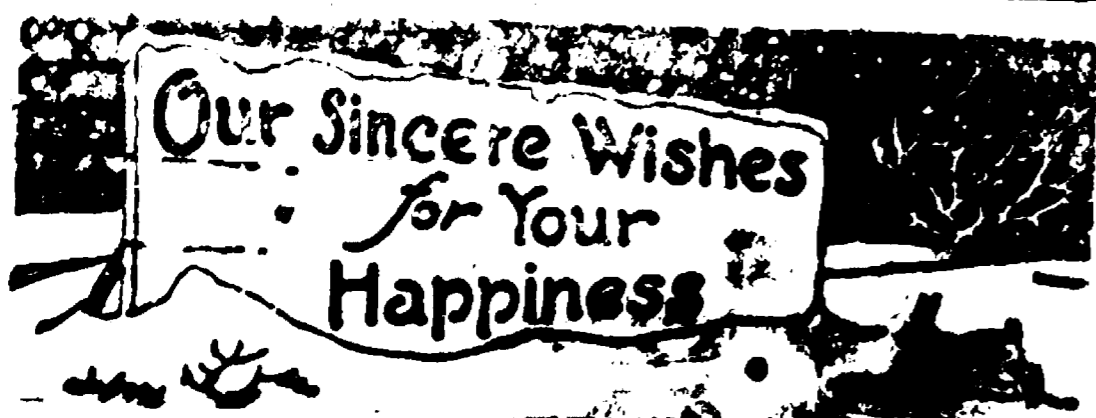 Our Sincere Wishes
for Your
Happiness